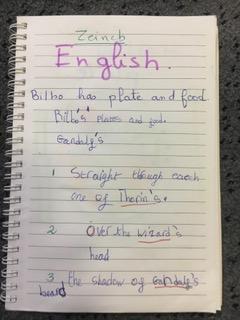 Zeineb
English.
Bilbo has plate and food
Bilbo's plates and food.
Gandalf's
1 Straight through each
one of Thorin's.
2 Over the wizard's
head
3 the shadow of Gandalf's
beard